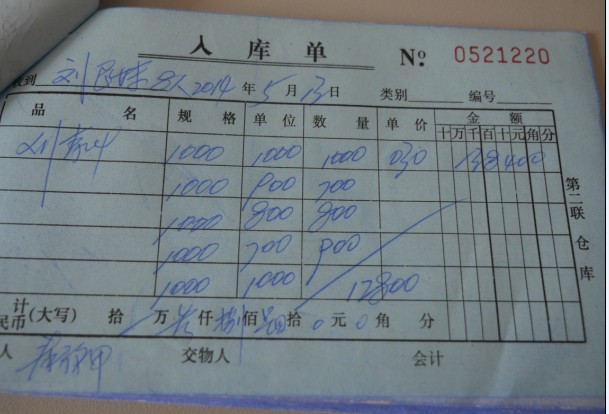 入库单 No: 0521220
收到 2014年5月13日 类别 编号
品名 规格 单位 数量 单价 金额
十万千百十元角分
1000 1000 1000 030 138400
1000 900 700
1000 800 800
1000 700 900
1000 1000 12800
计
民币(大写) 拾 万 仟 捌佰 拾 0元 0角 分
人 交物人 会计
第二联 仓库